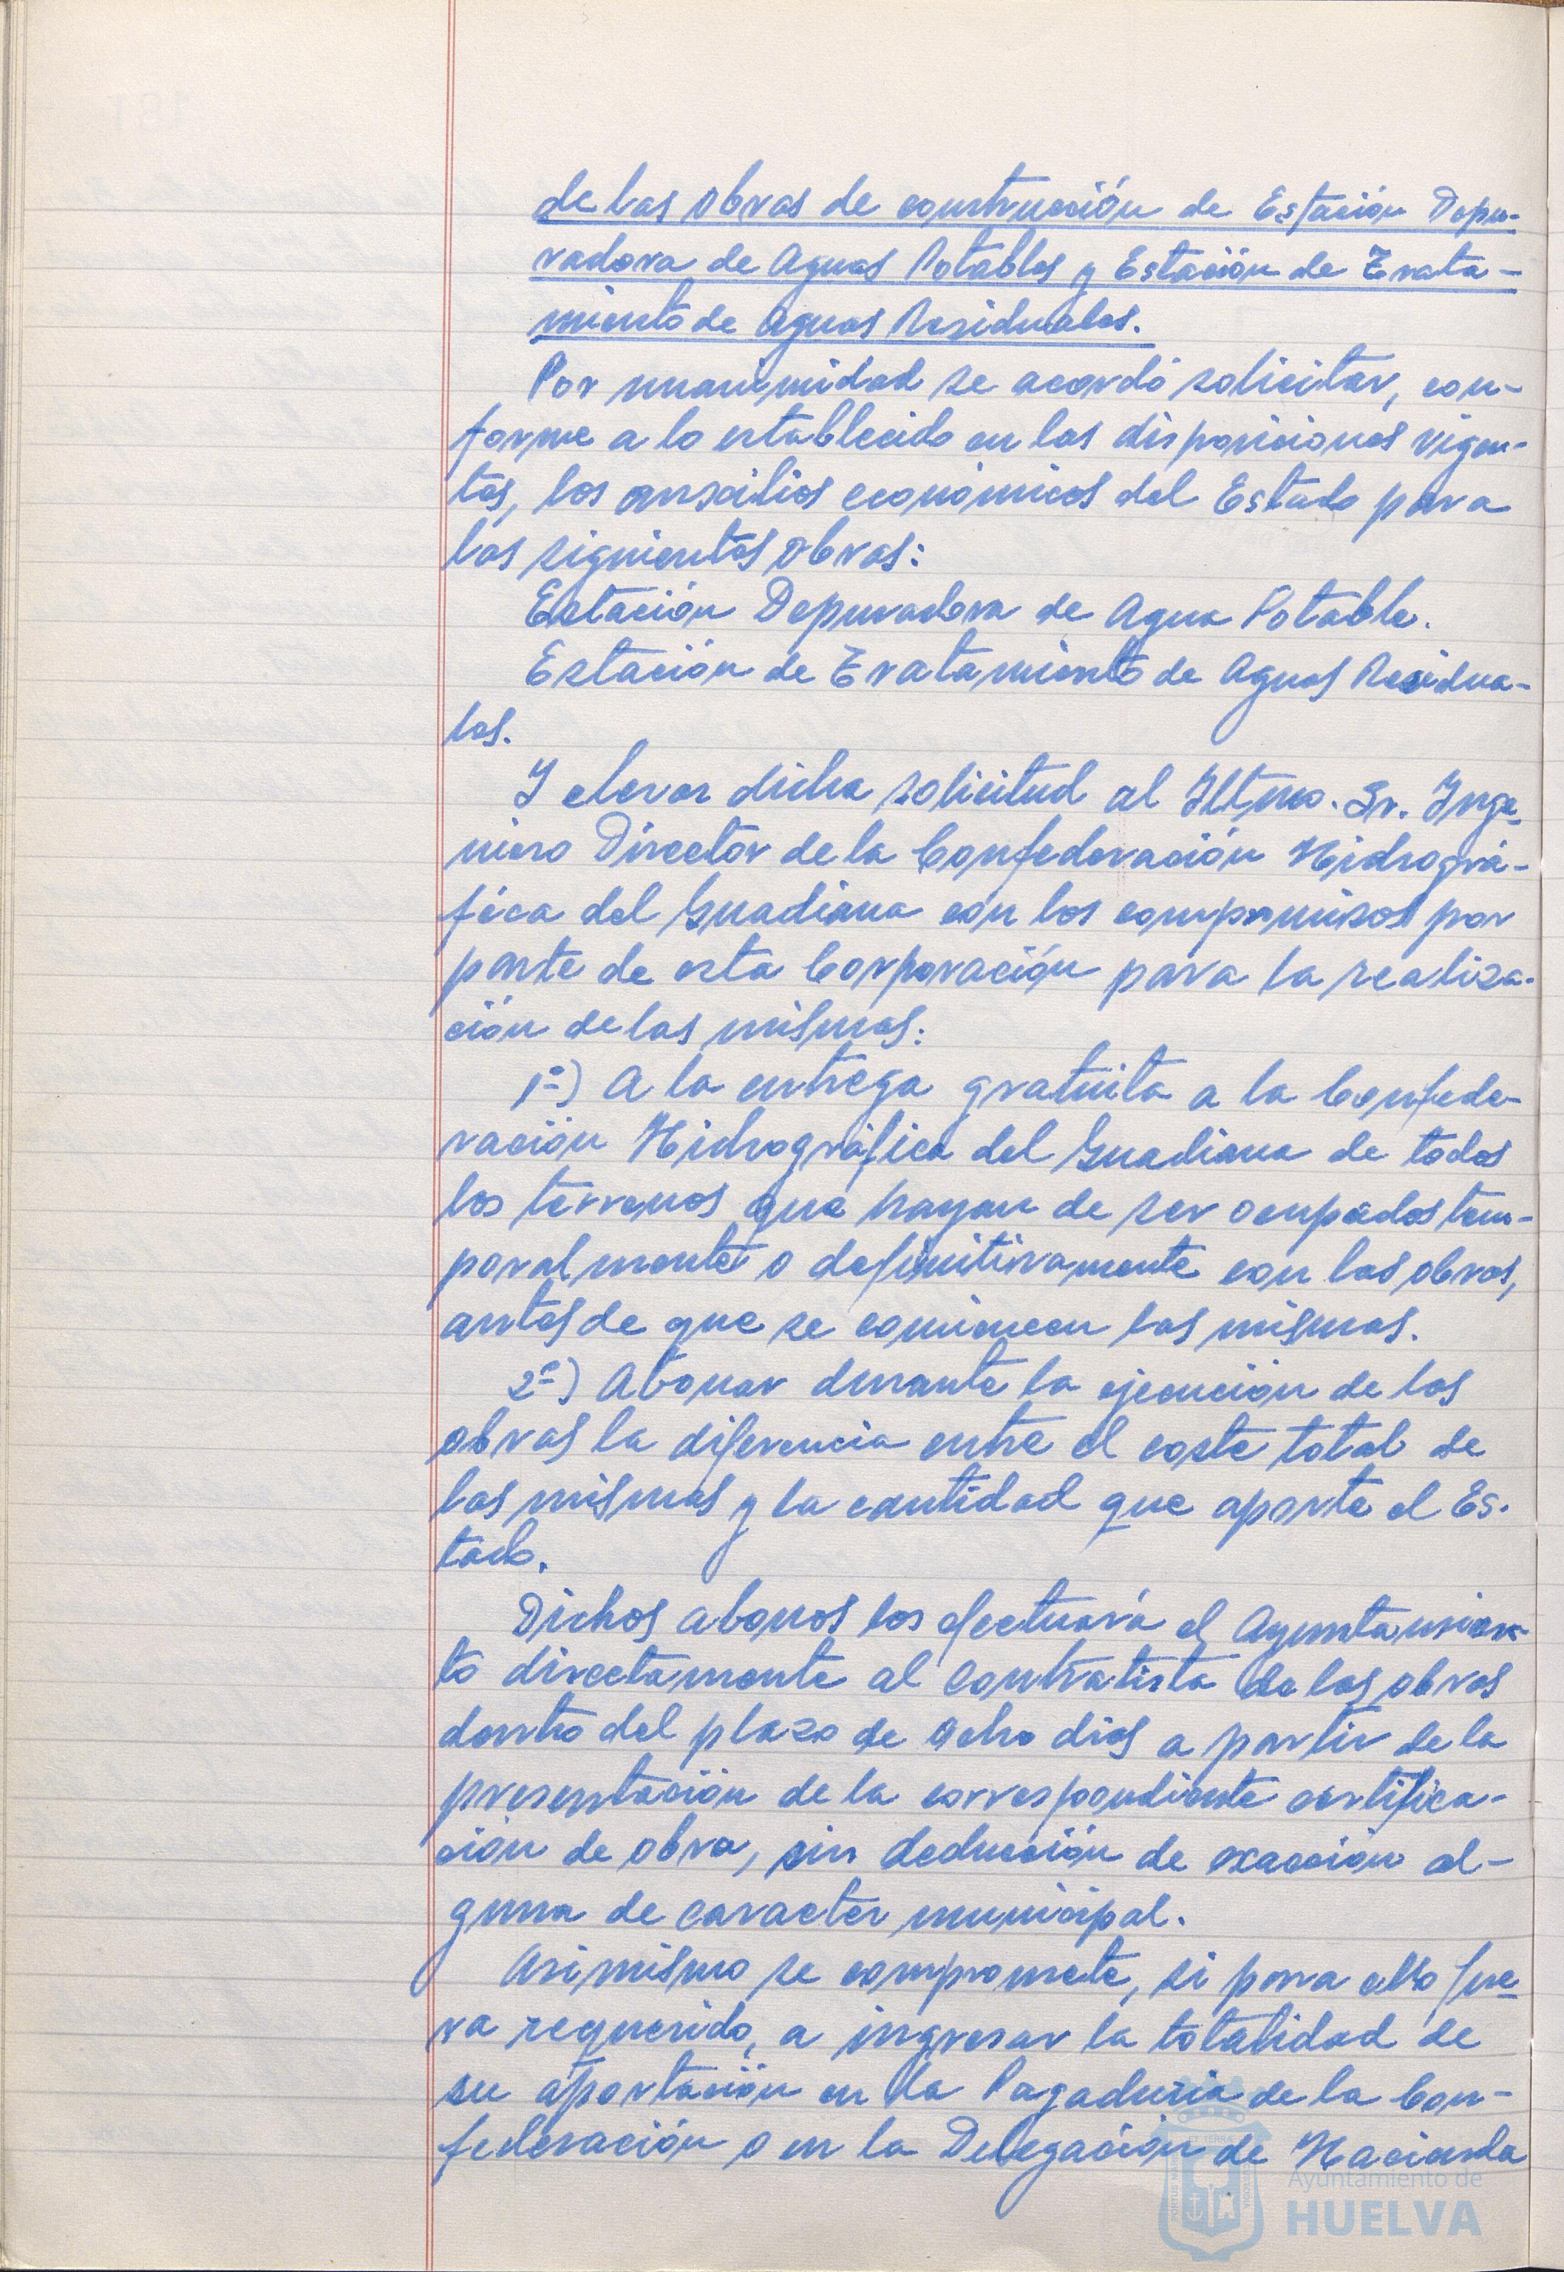 de las obras de construcción de Estación Depu-
radora de Aguas Potables y Estación de Trata-
miento de Aguas Residuales.
Por unanimidad se acordó solicitar, con-
forme a lo establecido en las disposiciones vigen-
tes, los auxilios económicos del Estado para
las siguientes obras:
Estación Depuradora de Agua Potable.
Estación de Tratamiento de Aguas Residua-
les.
Y elevar dicha solicitud al Iltmo. Sr. Inge-
niero Director de la Confederación Hidrográ-
fica del Guadiana con los compromisos por
parte de esta Corporación para la realiza-
ción de las mismas:
1º) A la entrega gratuita a la Confede-
ración Hidrográfica del Guadiana de todos
los terrenos que hayan de ser ocupados tem-
poralmente o definitivamente con las obras,
antes de que se comiencen las mismas.
2º) Abonar durante la ejecución de las
obras la diferencia entre el coste total de
las mismas y la cantidad que aporte el Es-
tado.
Dichos abonos los efectuará el Ayuntamien-
to directamente al contratista de las obras
dentro del plazo de ocho dias a partir de la
presentación de la correspondiente certifica-
ción de obra, sin deducción de exacción al-
guna de caracter municipal.
Asimismo se compromete, si para ello fue-
ra requerido, a ingresar la totalidad de
su aportación en la Pagaduria de la Con-
federación o en la Delegación de Hacienda
Ayuntamiento de
HUELVA